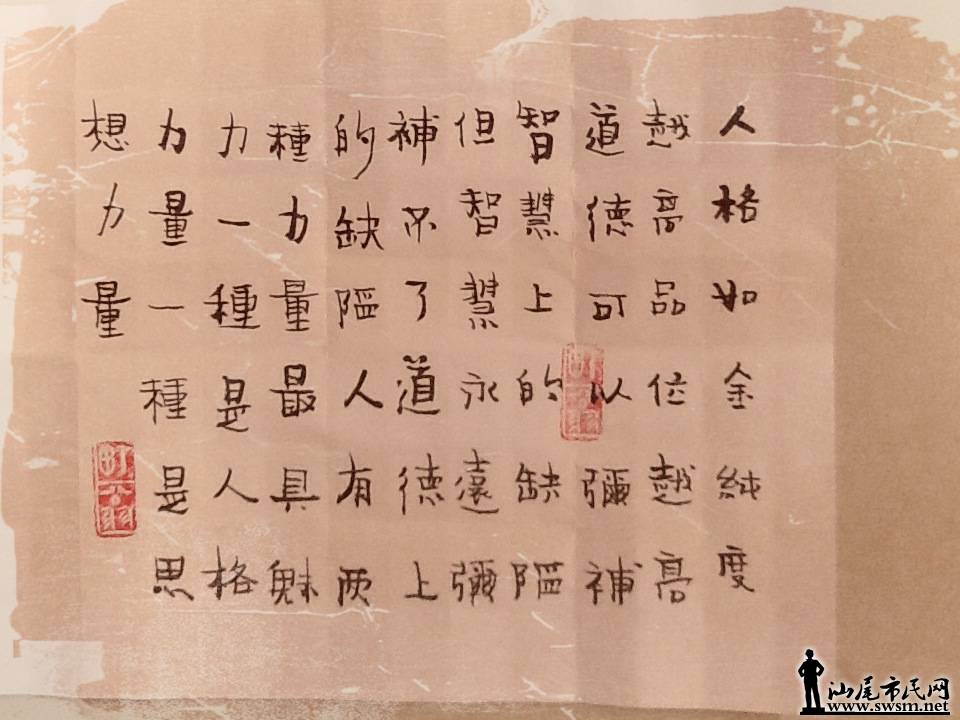 人格如金純度
越高品位越高
道德可以彌補
智慧上的缺陋
但智慧永遠彌
補不了道德上
的缺陋人有两
種力量最具魅
力一種是人格
力量一種是思
想力量
汕尾市民网
www.swsm.net